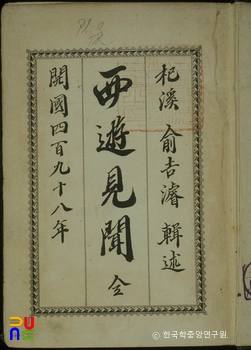 杞溪 兪吉濬 輯述
西遊見聞 全
開國四百九十八年
ⓒ 한국학중앙연구원.